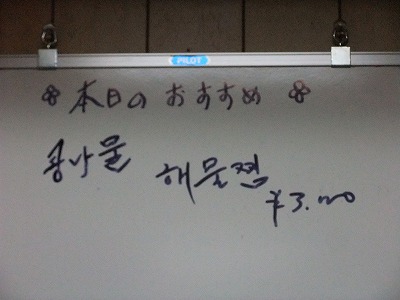 PILOT
本日の おすすめ
콩나물
해물찜
¥3.000